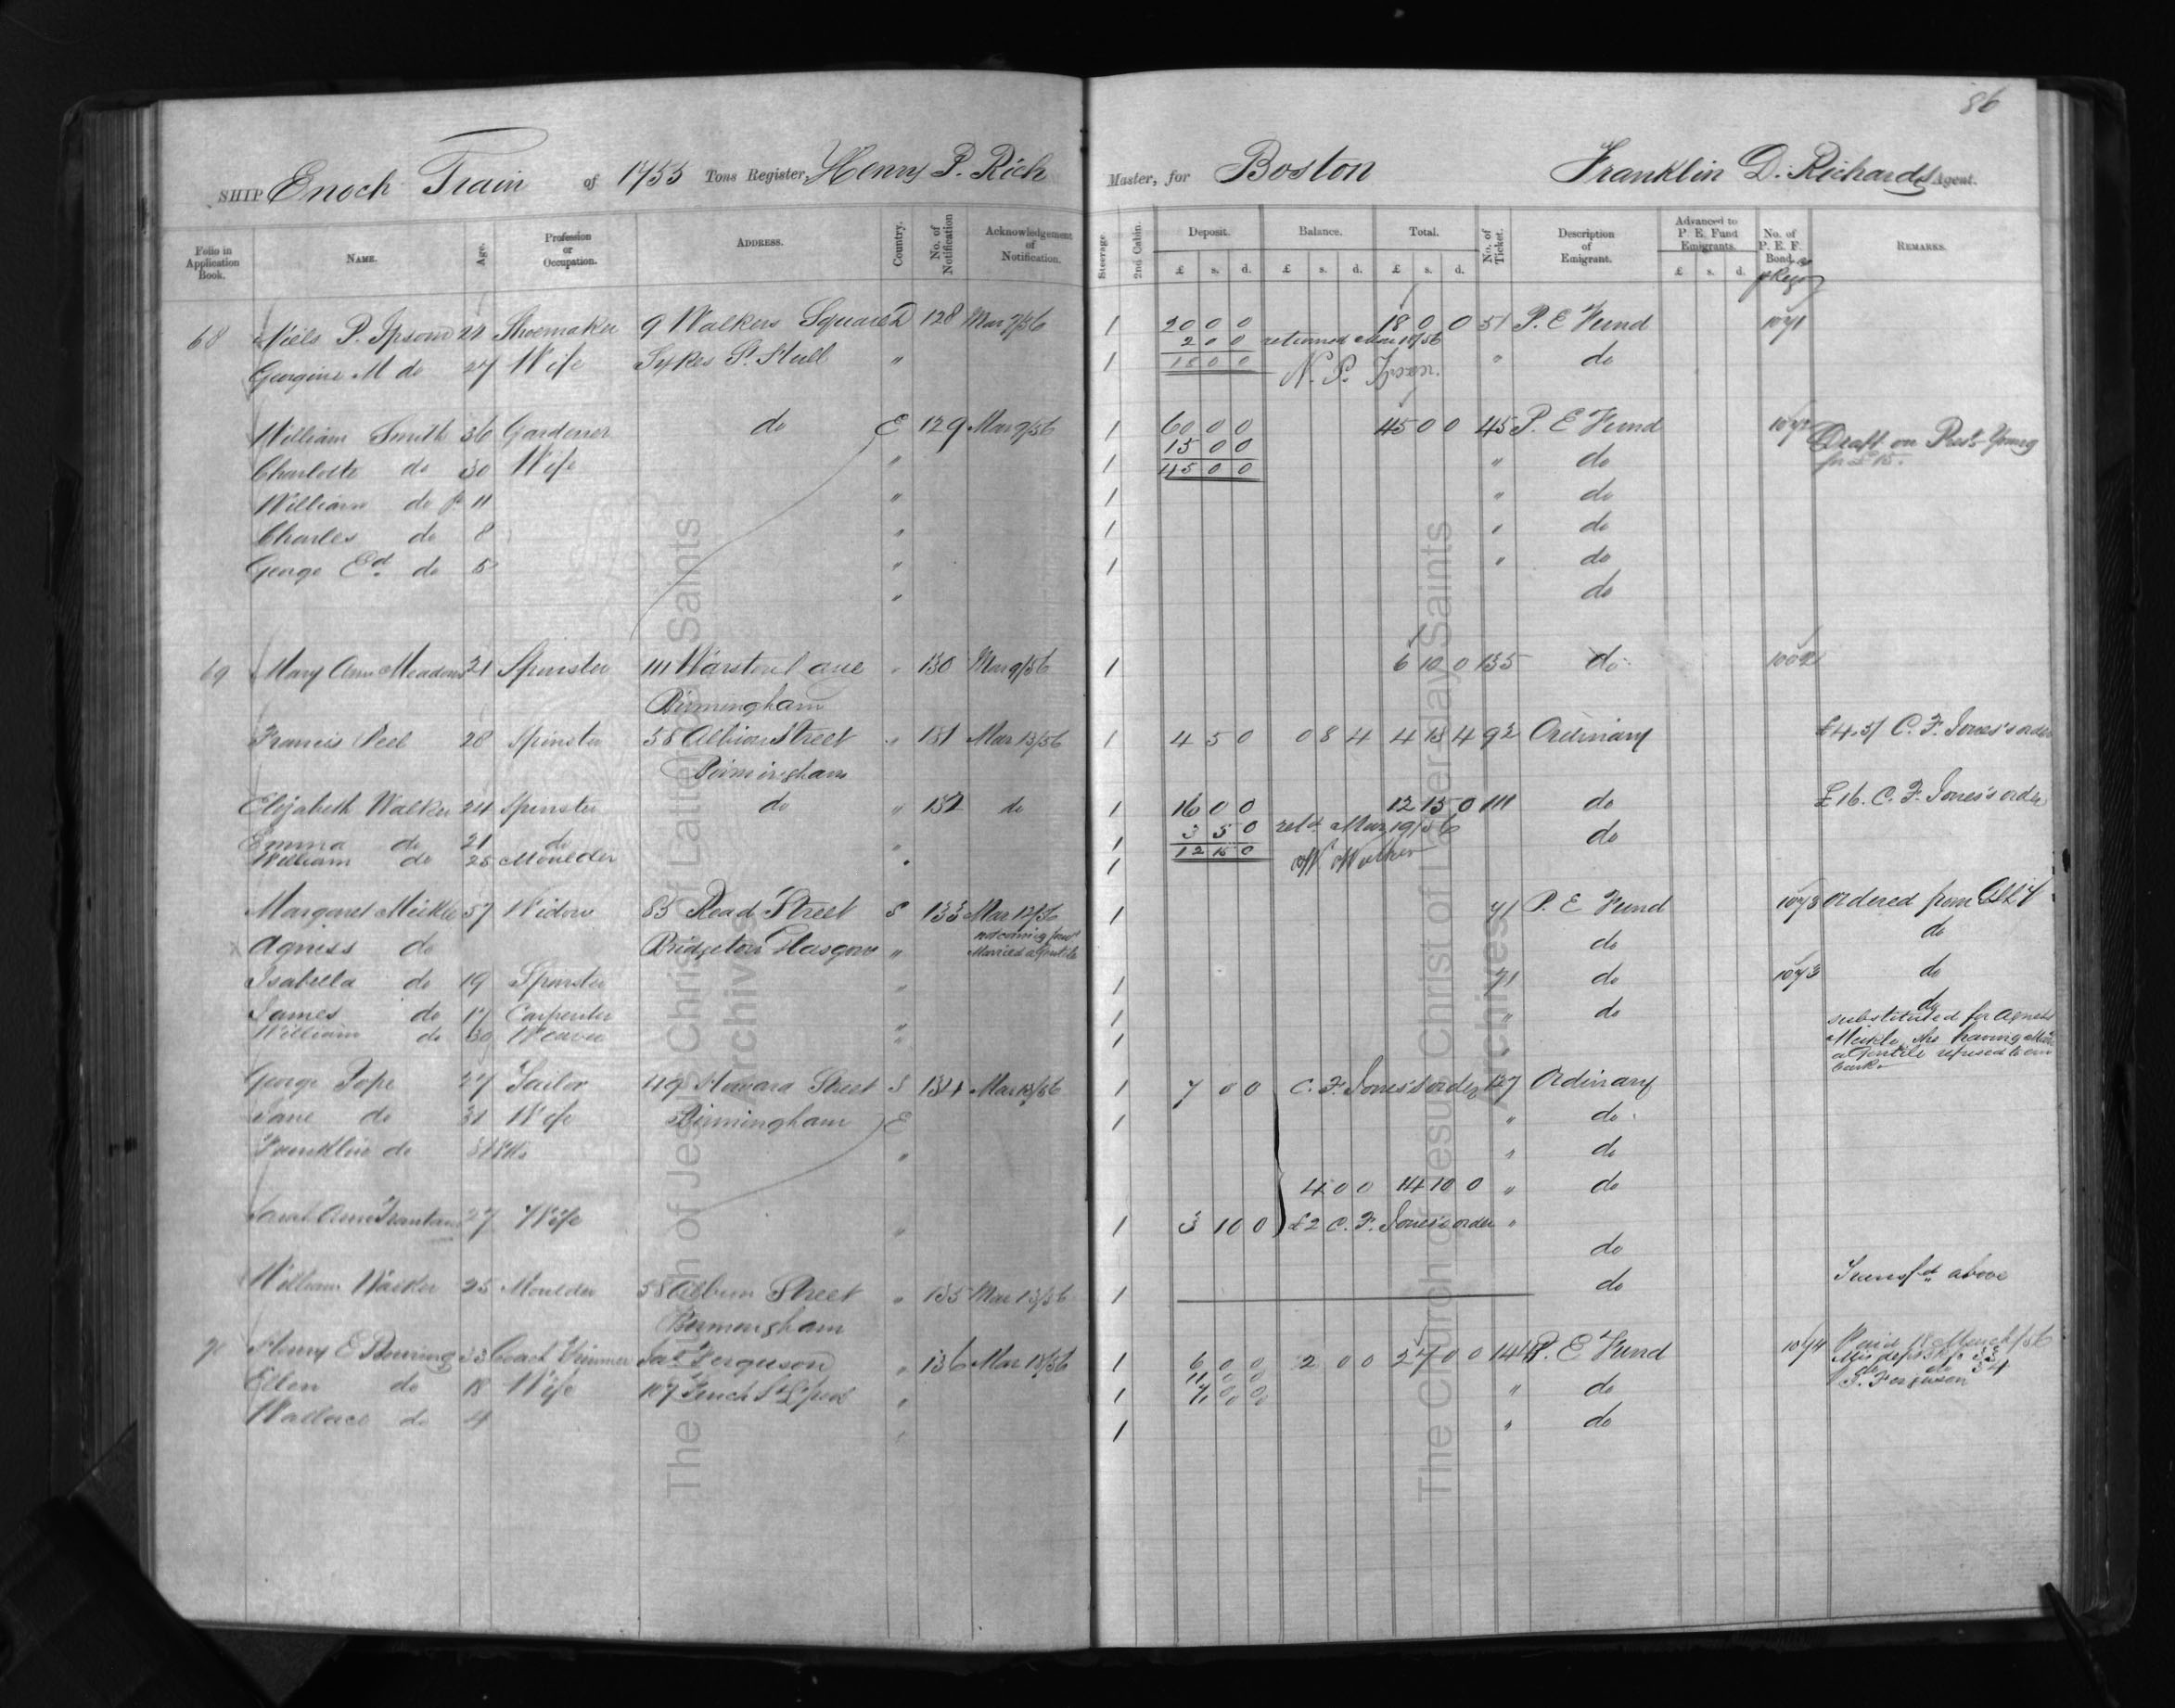 86
SHIP Enoch Train of 1755 Tons Register, Henry P. Rich Master, for Boston Franklin D. Richards Agent.
Folio in Application Book. NAME. Age. Profession or Occupation. ADDRESS. Country. No. of Notification Acknowledgement of Notification. Steerage 2nd Cabin. Deposit. Balance. Total. No. of Ticket. Description of Emigrant. Advanced to P. E. Fund Emigrants. No. of P. E. F. Bond. REMARKS.
£ s. d. £ s. d. £ s. d. £ s. d.
68 Niels P. Ipsom 24 Shoemaker 9 Walkers Square D 128 Mar 7/56 1 20 0 0 18 0 0 51 P. E Fund 1071
2 0 0 returned Mar 18/56
Georgine M do 27 Wife Sykes St. Hull " 1 18 0 0 N. P. Ipsen. " do
William Smith 36 Gardener do E 129 Mar 9/56 1 60 0 0 45 0 0 45 P. E Fund 1072 Draft on Prest. Young
15 0 0 for £15.
Charlotte do 30 Wife " 1 45 0 0 " do
William do Jr 11 " 1 " do
Charles do 8 " 1 " do
George Ed. do 5 " 1 " do
" do
69 Mary Ann Meadows 21 Spinster 111 Warstone Lane " 130 Mar 9/56 1 6 10 0 135 do
Birmingham
Francis Peel 28 Spinster 58 Albion Street " 131 Mar 13/56 1 4 5 0 0 8 4 4 13 4 92 Ordinary £4.5/ C. F. Jones's order
Birmingham
Elizabeth Walker 24 Spinster do " 132 do 1 16 0 0 12 15 0 111 do £16. C. F. Jones's order
3 5 0 retd. Mar 19/56
Emma do 21 do " 1 12 15 0 W. Walker do
William do 25 Moulder " 1
Margaret Meikle 57 Widow 85 Read Street S 133 Mar 12/56 1 71 P. E Fund 1073 Ordered from
Agness do Bridgeton Glasgow " not coming
Married a Gentile do do
Isabella do 19 Spinster " 1 71 do 1073 do
James do 17 Carpenter 1 " do do
William do 30 Weaver " 1 substituted for Agness
Meikle, she having
a Gentile refused to em
bark
George Pope 27 Tailor 49 Howard Street S 134 Mar 13/56 1 7 0 0 C. F. Jones's order 127 Ordinary
Jane do 31 Wife Birmingham E 1 " do
Franklin do " " do
4 0 0 14 10 0 " do
Sarah Ann 27 Wife " 1 3 10 0 £2 C. F. Jones's order "
do
William Walker 25 Moulder 58 Albion Street " 135 Mar 13/56 1 do Transfd. above
Birmingham
70 Henry E Bowring 33 Coach Trimmer Jas Ferguson " 136 Mar 13/56 1 6 0 0 2 0 0 27 0 0 144 P. E Fund 1074 Paid 18 March/56
11 0 0
Ellen do 18 Wife 107 Finch St L'pool " 1 " do J. Ferguson
Wallace do 4 " 1 " do
The Church of Jesus Christ of Latter-day Saints
Archives
The Church of Jesus Christ of Latter-day Saints
Archives